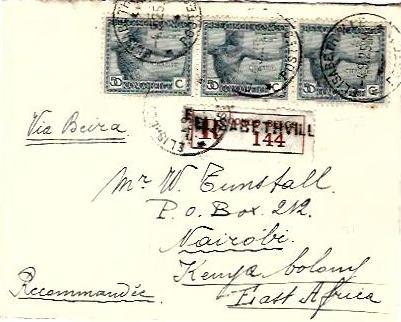 50 C 50 C 50 C
Via Beira
R ELISABETHVILLE
144
Mr W. Tunstall.
P. O. Box 212.
Nairobi.
Kenya Colony
East Africa
Recommandée